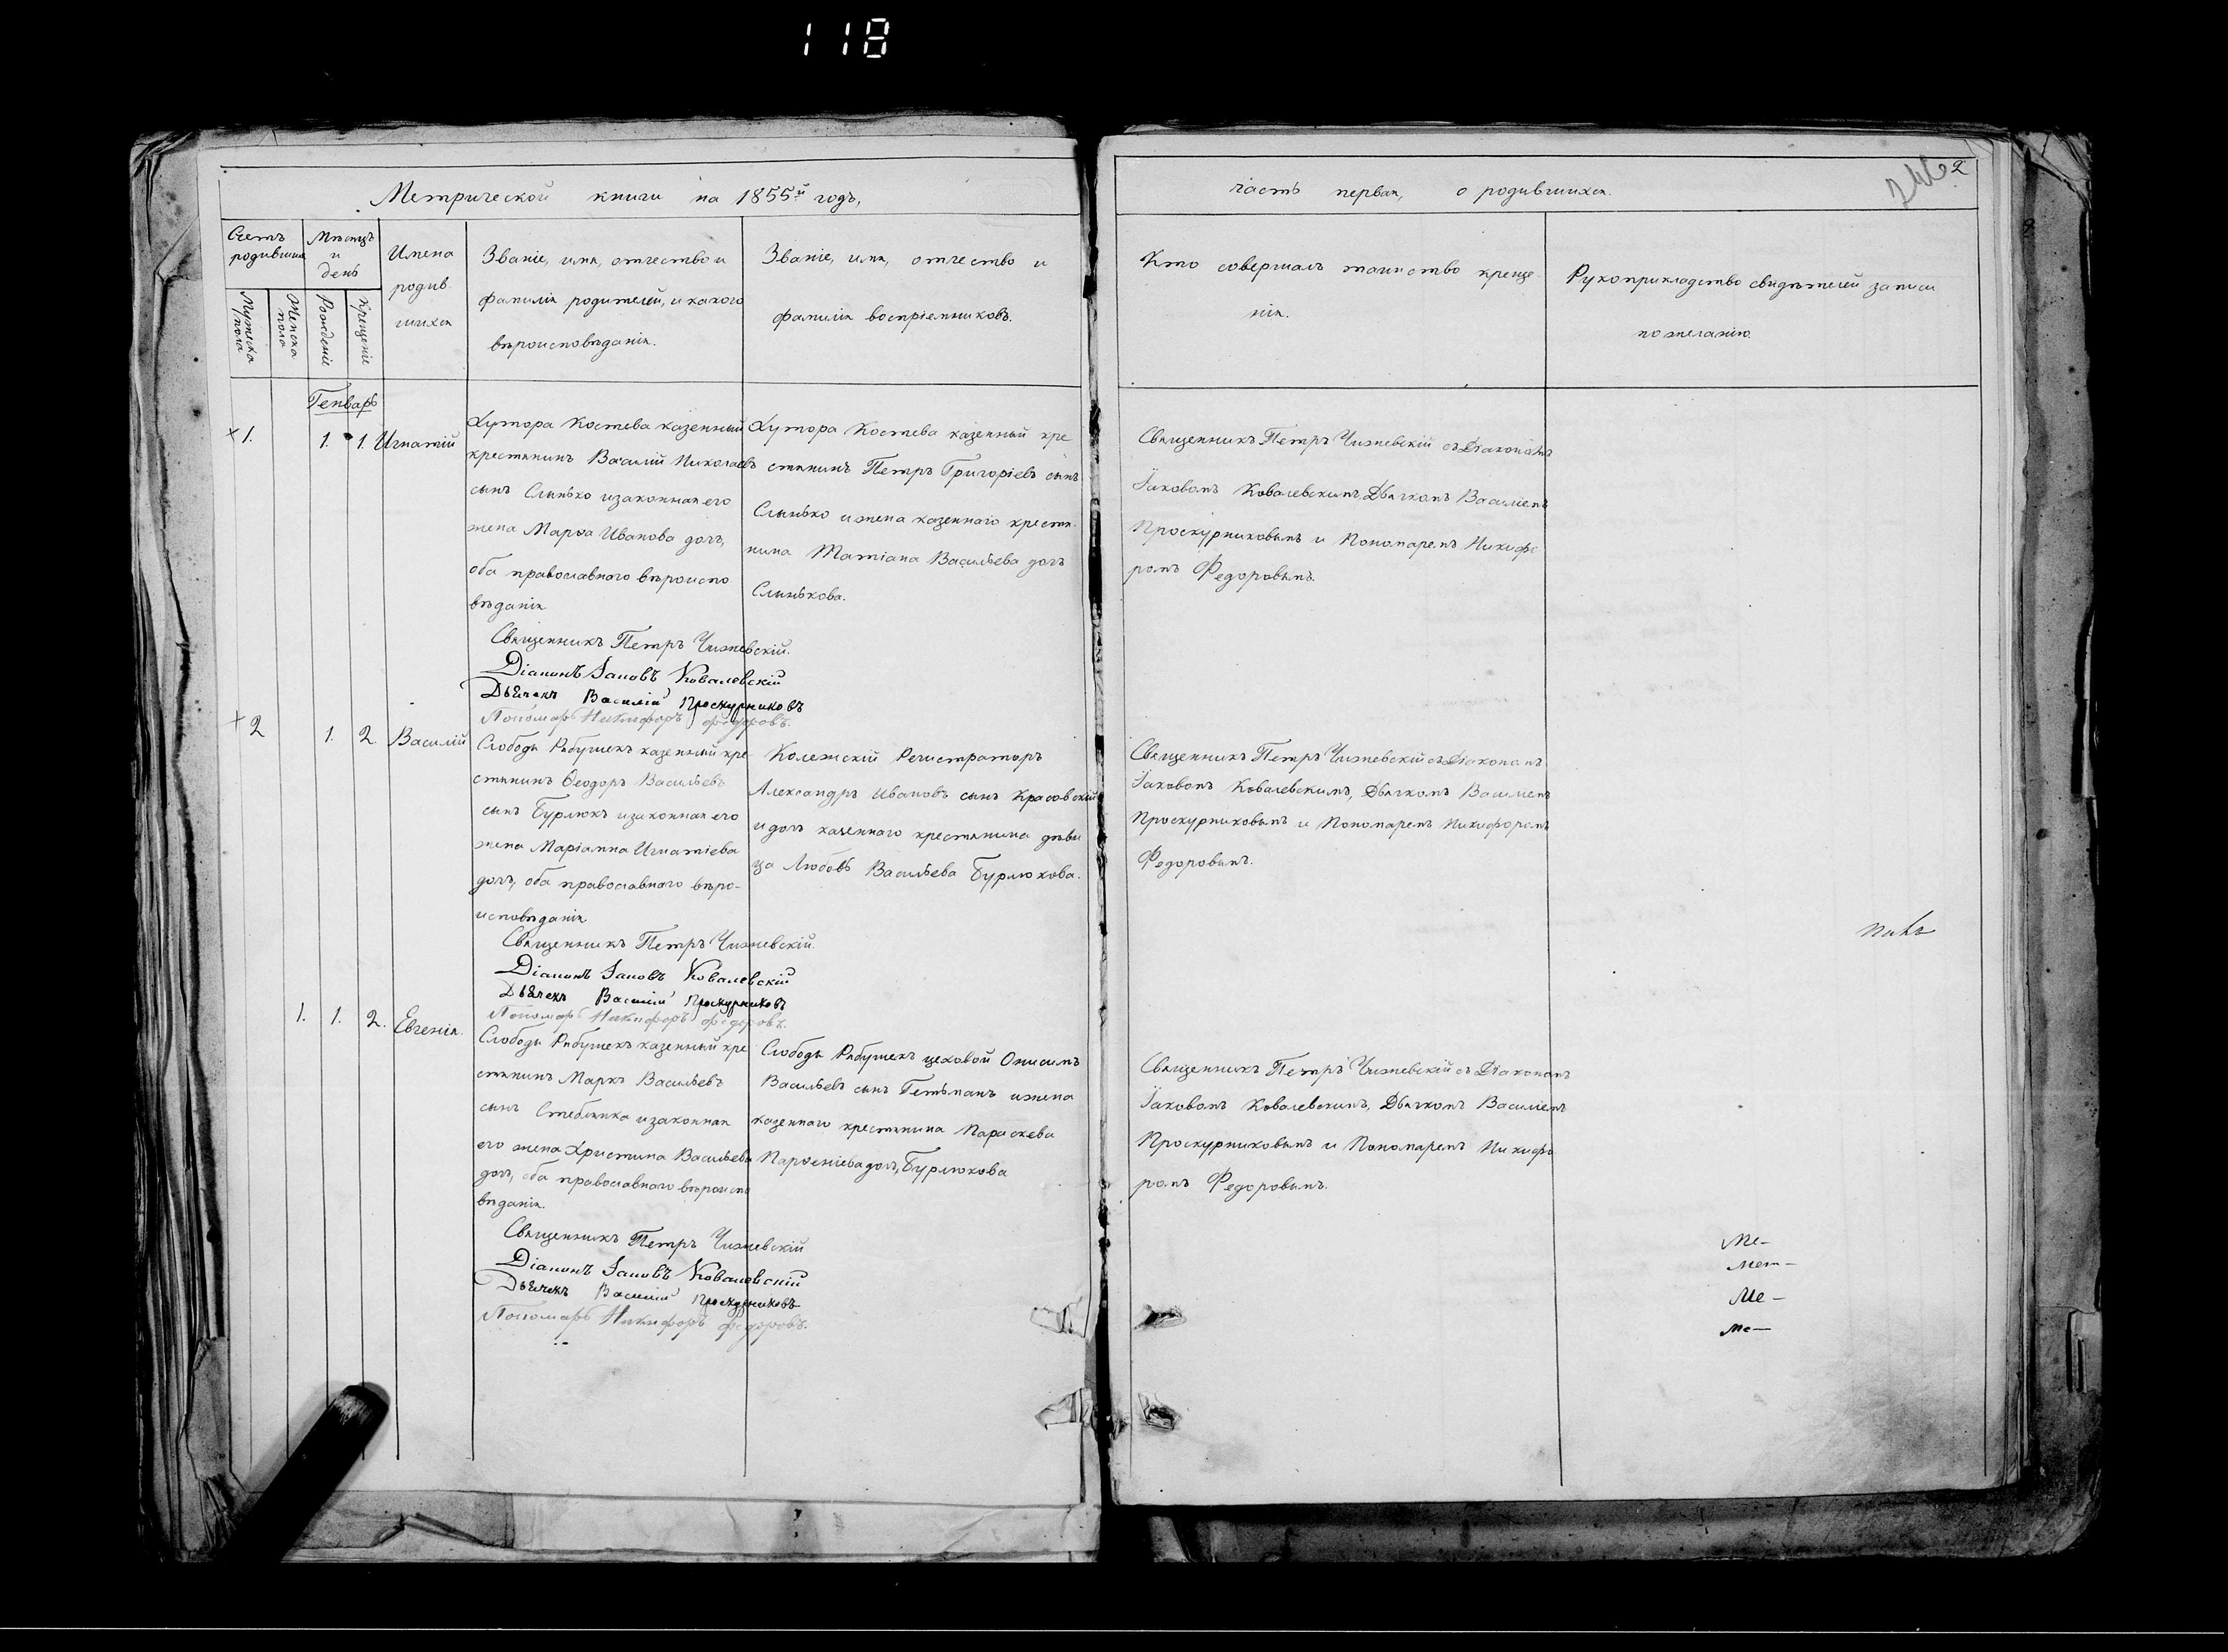 118
Метрической книги на 1855й годъ,
Счетъ родившихся
Мѣсяцъ и день
Имена родив-
шихся
Званіе, имя, отчество и
фамилія родителей, и какого
вѣроисповѣданія.
Званіе, имя, отчество и
фамилія воспріемниковъ.
Мужеска пола
Женска пола
Рожденіе
Крещеніе
Генварь
1. 1. 1. Игнатій
Хутора Костева казенный
крестьянинъ Василій Николаевъ
сынъ Слинько изаконная его
жена Марѳа Иванова дочь,
оба православнаго вѣроиспо
вѣданія
Хутора Костева казенный кре
стьянинъ Петръ Григоріевъ сынъ
Слинько ижена казеннаго крестья-
нина Татіана Васильева дочь
Слинькова.
Священникъ Петръ Чижевскій.
Діаконъ Іаковъ Ковалевскій
Дьячекъ Василій Проскурниковъ
Пономарь Никифоръ Федоровъ.
2 1. 2. Василій
Слободы Рябушекъ казенный кре-
стьянинъ Ѳеодоръ Васильевъ
сынъ Бурлюкъ изаконная его
жена Маріанна Игнатіева
дочь, оба православнаго вѣро-
исповѣданія
Колежскій Регистраторъ
Александръ Ивановъ сынъ Красовскій
и дочь казеннаго крестьянина дѣви
ца Любовь Васильева Бурлюкова.
Священникъ Петръ Чижевскій.
Діаконъ Іаковъ Ковалевскій
Дьячекъ Василій Проскурниковъ
Пономарь Никифоръ Федоровъ.
1. 1. 2. Евгенія.
Слободы Рябушекъ казенный кре
стьянинъ Маркъ Васильевъ
сынъ Стеблянка изаконная
его жена Христина Васильева
дочь, оба православнаго вѣроиспо
вѣданія.
Слободы Рябушекъ цеховой Онисимъ
Васильевъ сынъ Гетьманъ ижена
казеннаго крестьянина Параскева
Парѳеніева дочь, Бурлюкова
Священникъ Петръ Чижевскій
Діаконъ Іаковъ Ковалевскій
Дьячекъ Василій Проскурниковъ
Пономарь Никифоръ Федоровъ.
часть первая, о родившихся.
2
Кто совершалъ таинство креще-
нія.
Рукоприкладство свидѣтелей записи
по желанію.
Священникъ Петръ Чижевскій съ Діакономъ
Іаковомъ Ковалевскимъ, Дьячкомъ Василіемъ
Проскурниковымъ и Пономаремъ Никифо
ромъ Федоровымъ.
Священникъ Петръ Чижевскій съ Діакономъ
Іаковомъ Ковалевскимъ, Дьячкомъ Василіемъ
Проскурниковымъ и Пономаремъ Никифоромъ
Федоровымъ.
Священникъ Петръ Чижевскій съ Діакономъ
Іаковомъ Ковалевскимъ, Дьячкомъ Василіемъ
Проскурниковымъ и Пономаремъ Никифо
ромъ Федоровымъ.
Ме-
мет-
Ме-
ме-